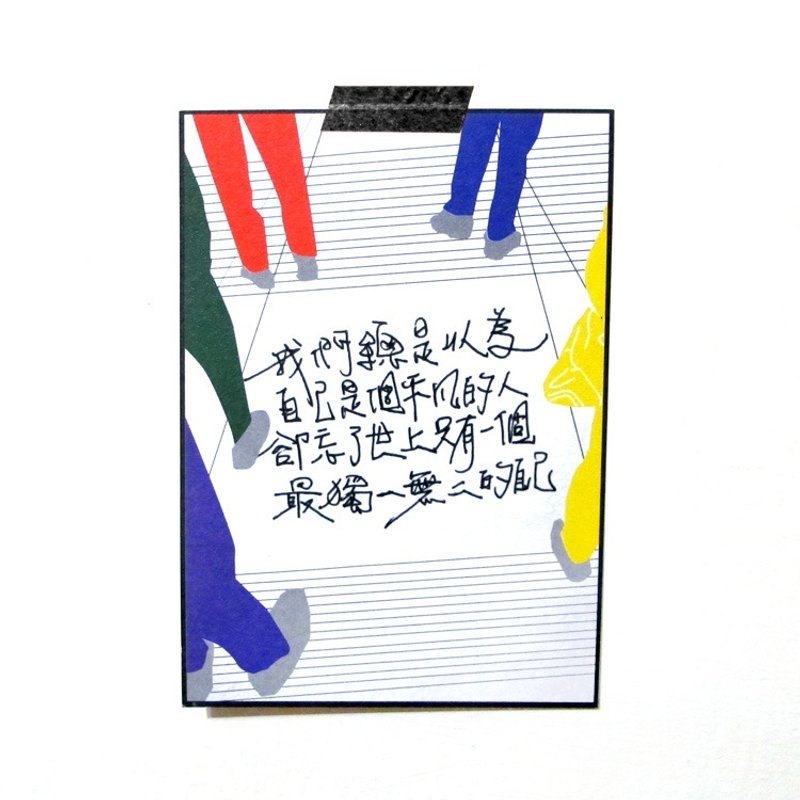 我們總是以為
自己是個平凡的人
卻忘了世上只有一個
最獨一無二的自己